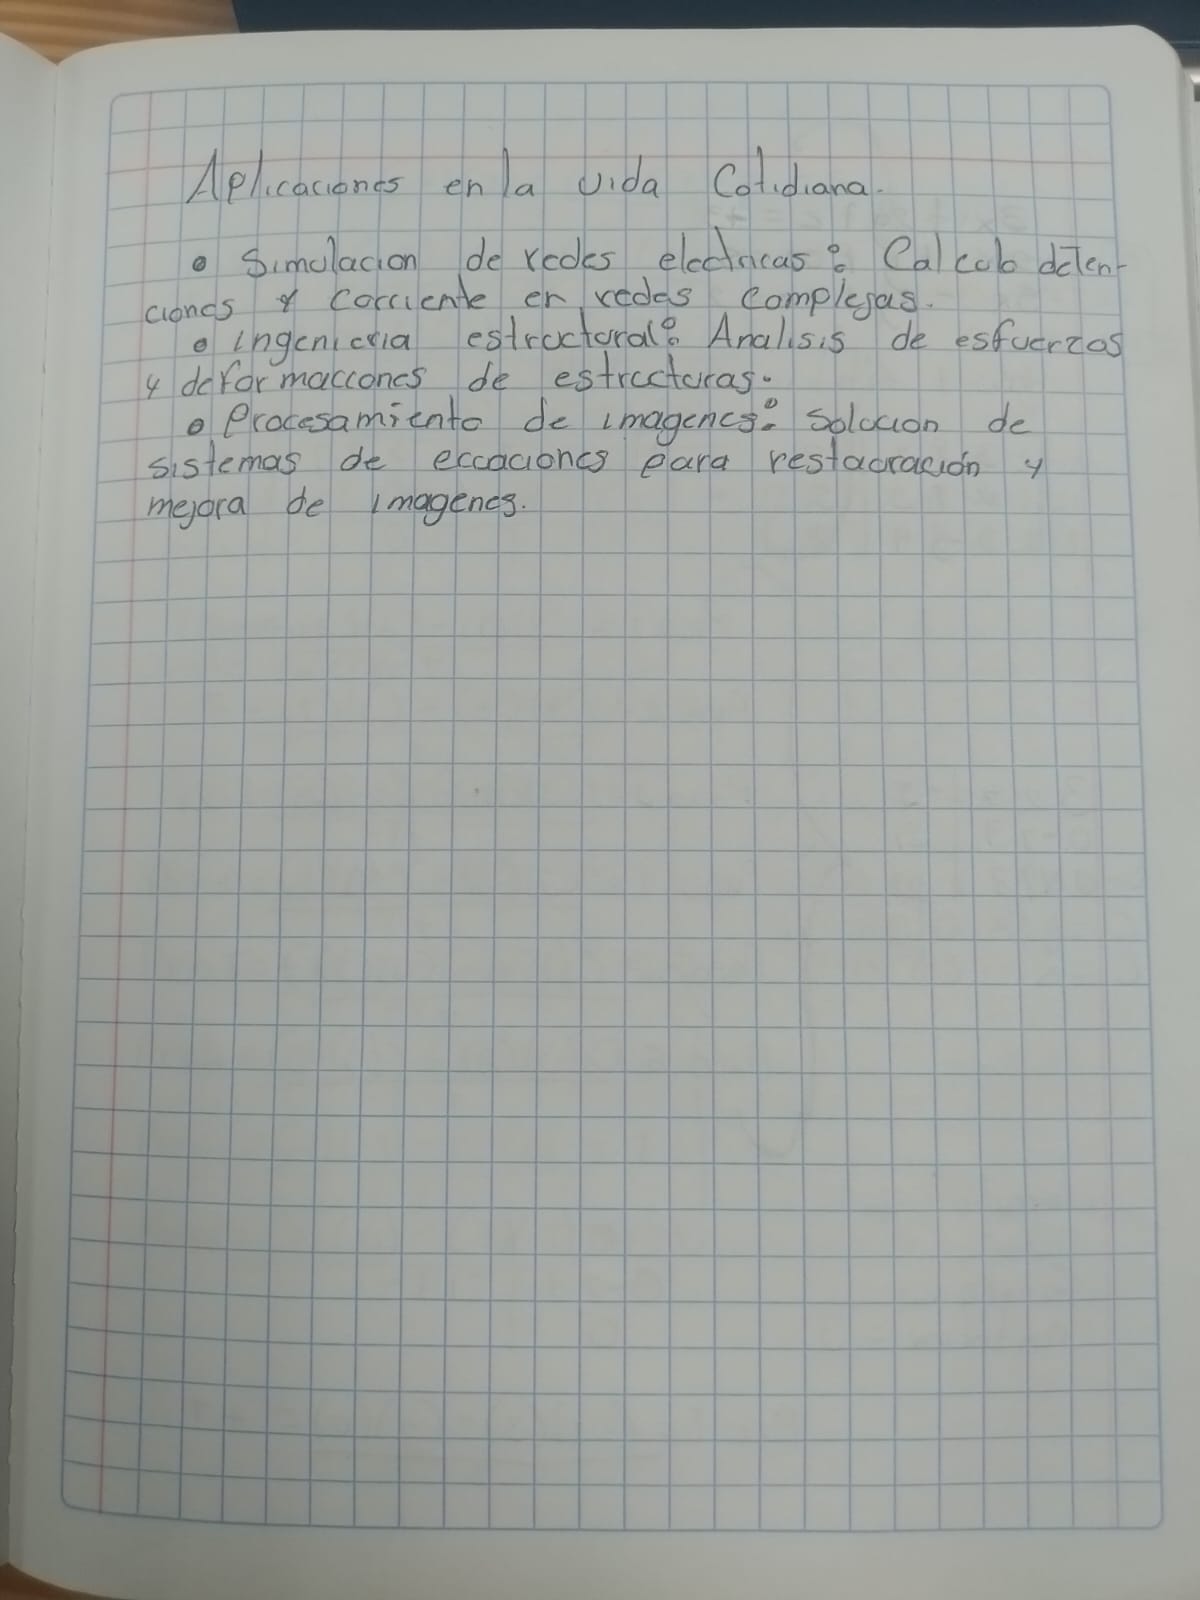 Aplicaciones en la vida Cotidiana.
• Simulacion de redes electricas: Calculo de Ten-
ciones y corriente en redes complejas.
• ingenieria estructural: Analisis de esfuerzos
y deformaciones de estructuras.
• Procesamiento de imagenes: Solucion de
sistemas de ecuaciones para restauración y
mejora de imagenes.